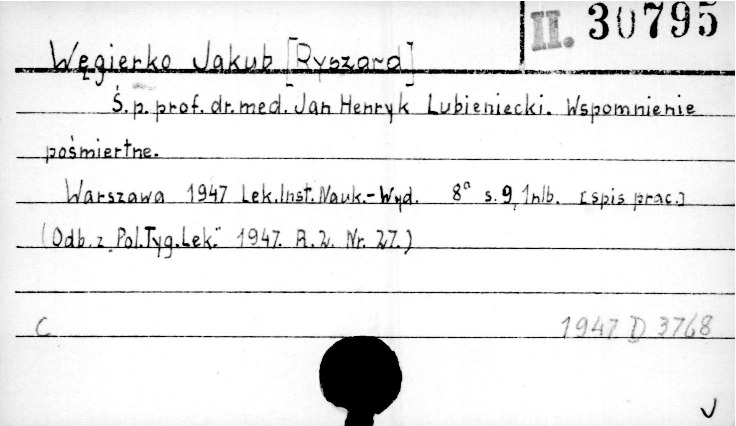 II. 30795
Węgierko Jakub [Ryszard]
Ś.p. prof. dr. med. Jan Henryk Lubieniecki. Wspomnienie
pośmiertne.
Warszawa 1947 Lek. Inst. Nauk.-Wyd. 8° s. 9, 1 nlb. [spis prac.]
(Odb. z „Pol. Tyg. Lek." 1947. R. 2. Nr. 27.)
C 1947 D 3768